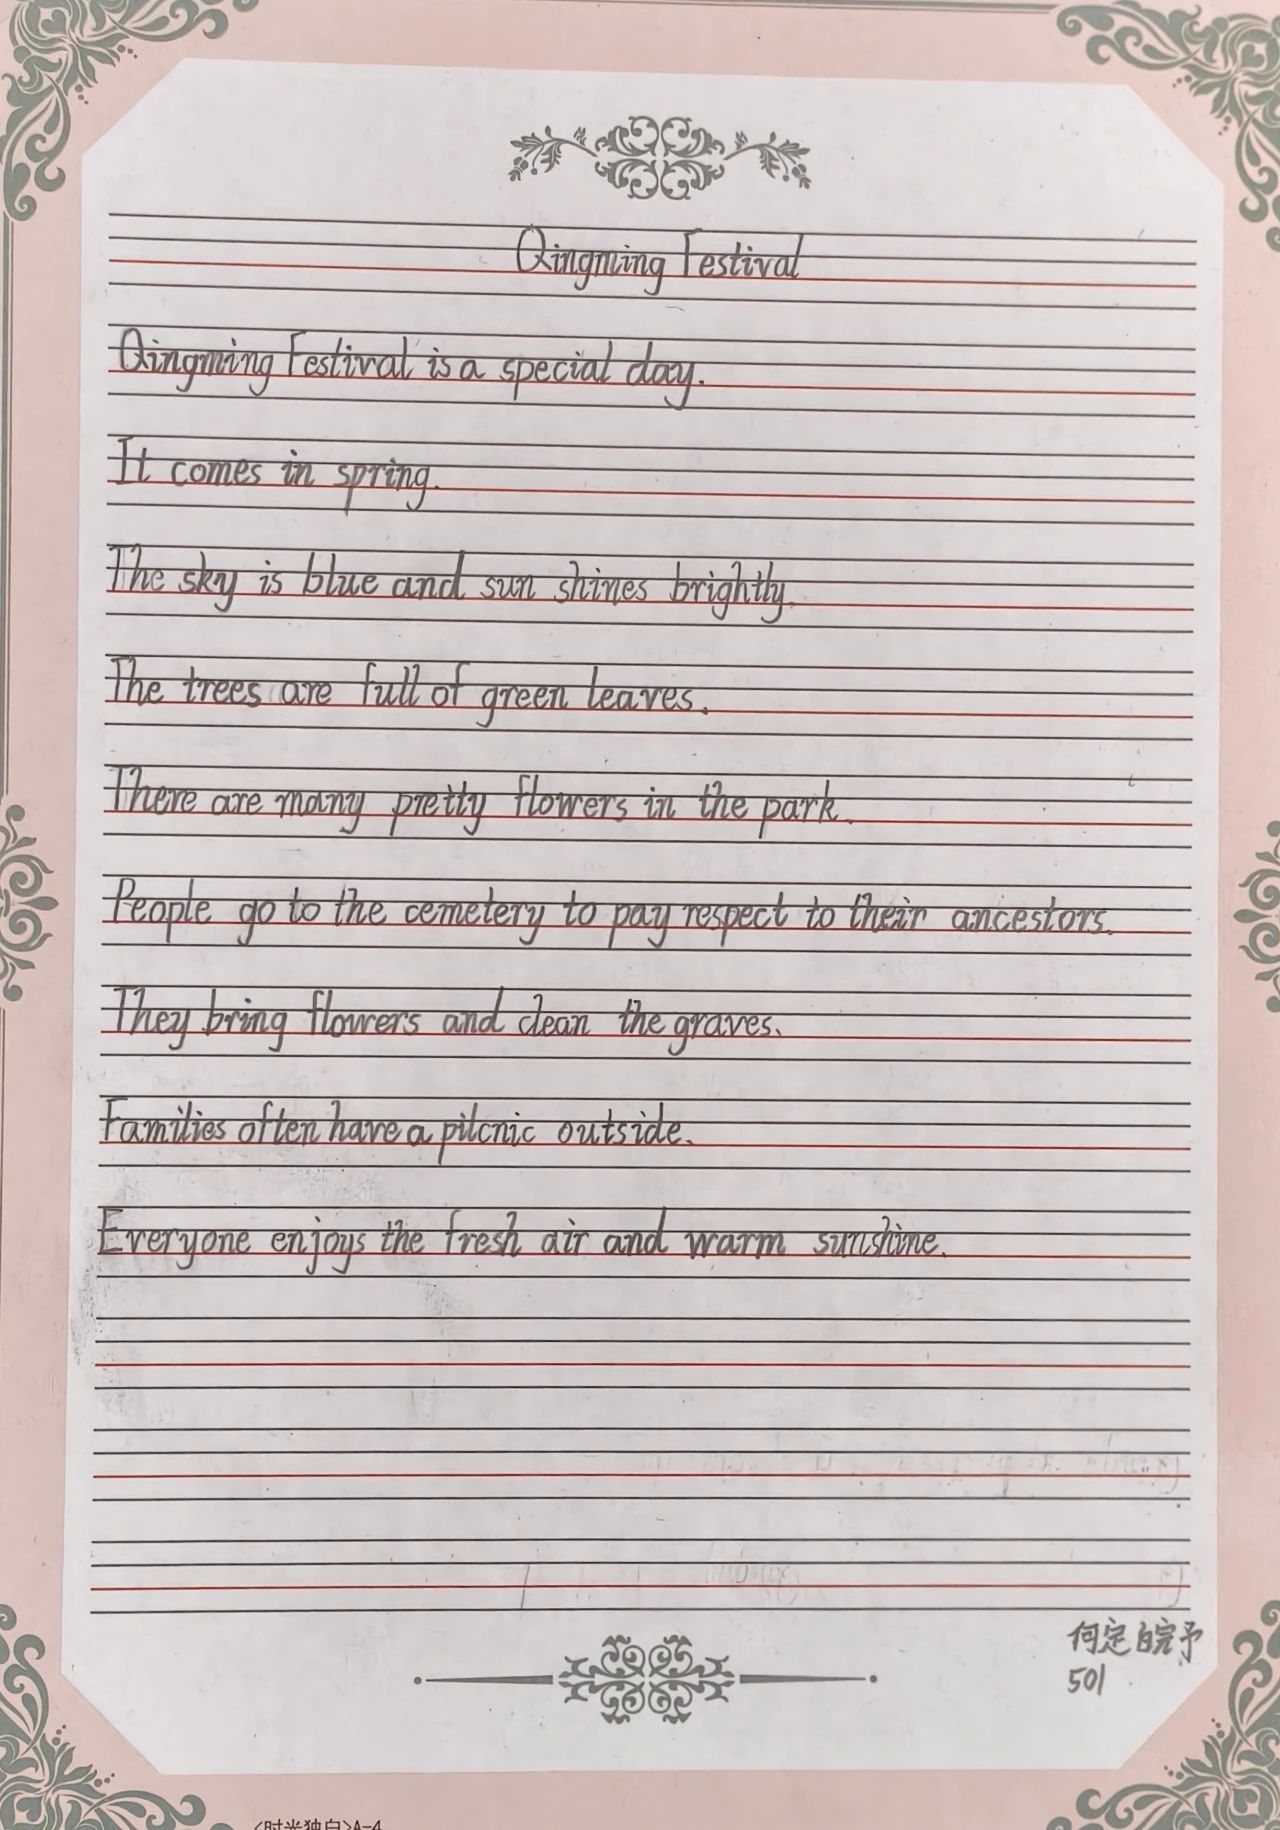 Qingming Festival
Qingming Festival is a special day.
It comes in spring.
The sky is blue and sun shines brightly.
The trees are full of green leaves.
There are many pretty flowers in the park.
People go to the cemetery to pay respect to their ancestors.
They bring flowers and clean the graves.
Families often have a pilcnic outside.
Everyone enjoys the fresh air and warm sunshine.
何定皖予
501
<时光独白>A-4